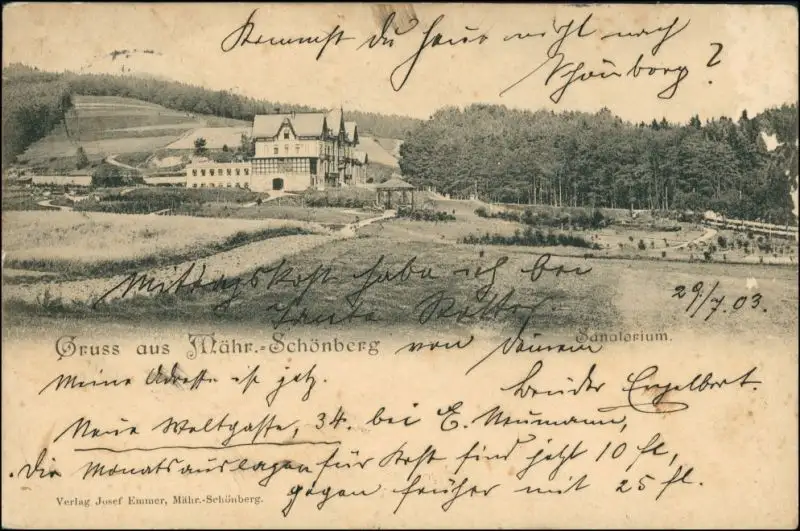 Kommst du Haus nicht nach
Schönborg?
Mittagskost habe ich bei
Tante Kettor.
29/7.03.
Gruss aus Mähr.-Schönberg
Sanatorium.
von Deinem
Bruder Engelbert.
Meine Adresse ist jetz.
Neue Weltgasse, 34. bei E. Neumann,
Die Monatsauslagen für Kost sind jetzt 10 fl,
gegen früher mit 25 fl.
Verlag Josef Emmer, Mähr.-Schönberg.